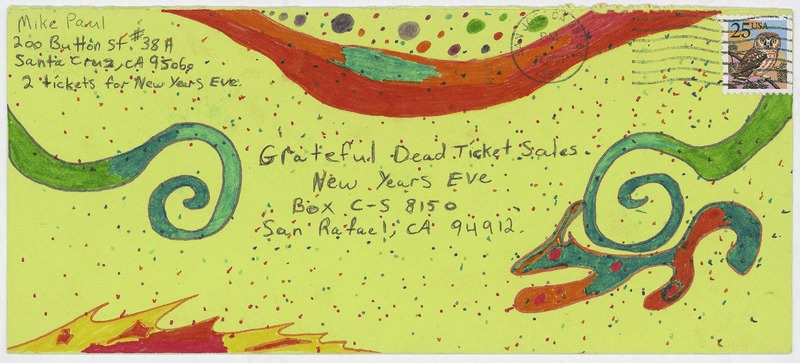 Mike Paul
200 Button St. #38A
Santa Cruz, CA 95060
2 tickets for New Years Eve.
25 USA
Grateful Dead Ticket Sales
New Years Eve
Box C-S 8150
San Rafael, CA 94912.